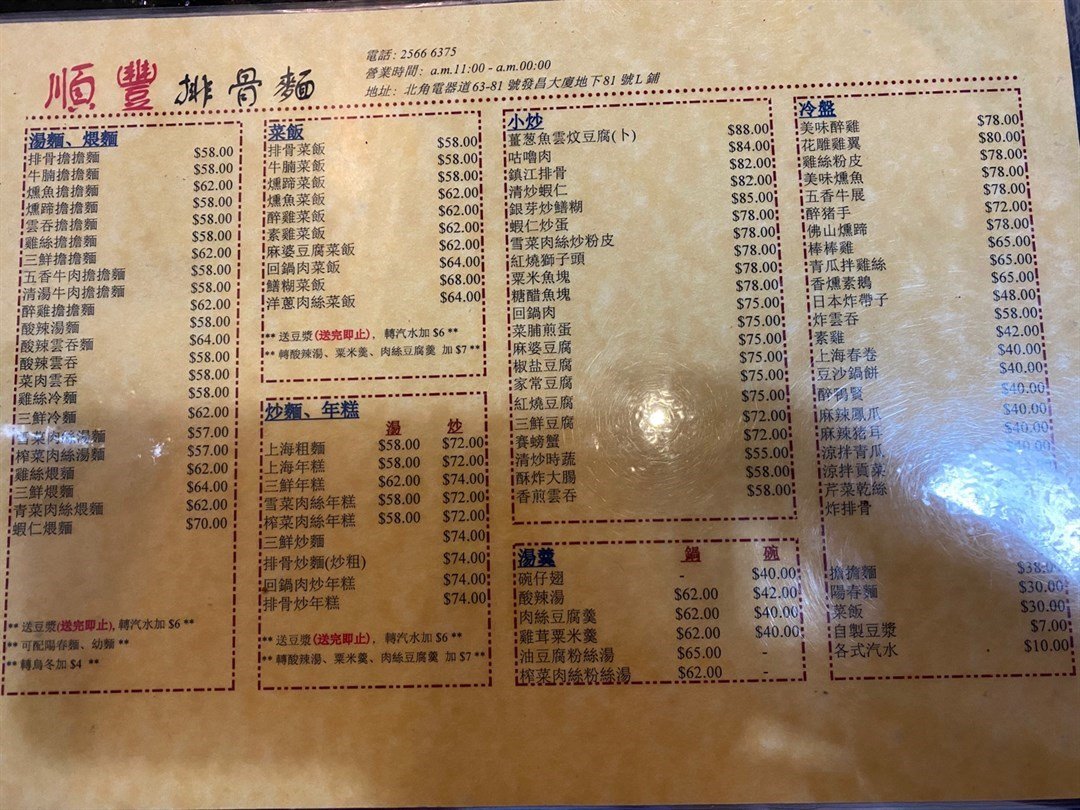 順豐 排骨麵
電話: 2566 6375
營業時間: a.m.11:00 - a.m.00:00
地址: 北角電器道63-81 號發昌大廈地下81 號L 舖
湯麵、煨麵
排骨擔擔麵 $58.00
牛腩擔擔麵 $58.00
燻魚擔擔麵 $62.00
燻蹄擔擔麵 $58.00
雲吞擔擔麵 $58.00
雞絲擔擔麵 $58.00
三鮮擔擔麵 $62.00
五香牛肉擔擔麵 $58.00
清湯牛肉擔擔麵 $58.00
醉雞擔擔麵 $62.00
酸辣湯麵 $58.00
酸辣雲吞麵 $64.00
酸辣雲吞 $58.00
菜肉雲吞 $58.00
雞絲冷麵 $58.00
三鮮冷麵 $62.00
雪菜肉絲湯麵 $57.00
榨菜肉絲湯麵 $57.00
雞絲煨麵 $62.00
三鮮煨麵 $64.00
青菜肉絲煨麵 $62.00
蝦仁煨麵 $70.00
** 送豆漿(送完即止), 轉汽水加 $6 **
** 可配陽春麵、幼麵 **
** 轉烏冬加 $4 **
菜飯
排骨菜飯 $58.00
牛腩菜飯 $58.00
燻蹄菜飯 $58.00
燻魚菜飯 $62.00
醉雞菜飯 $62.00
素雞菜飯 $62.00
麻婆豆腐菜飯 $62.00
回鍋肉菜飯 $64.00
鱔糊菜飯 $68.00
洋蔥肉絲菜飯 $64.00
** 送豆漿(送完即止), 轉汽水加 $6 **
** 轉酸辣湯、粟米羹、肉絲豆腐羹 加 $7 **
炒麵、年糕
湯 炒
上海粗麵 $58.00 $72.00
上海年糕 $58.00 $72.00
三鮮年糕 $62.00 $74.00
雪菜肉絲年糕 $58.00 $72.00
榨菜肉絲年糕 $58.00 $72.00
三鮮炒麵 $74.00
排骨炒麵(炒粗) $74.00
回鍋肉炒年糕 $74.00
排骨炒年糕 $74.00
** 送豆漿(送完即止), 轉汽水加 $6 **
** 轉酸辣湯、粟米羹、肉絲豆腐羹 加 $7 **
小炒
薑葱魚雲炆豆腐(卜) $88.00
咕嚕肉 $84.00
鎮江排骨 $82.00
清炒蝦仁 $82.00
銀芽炒鱔糊 $85.00
蝦仁炒蛋 $78.00
雪菜肉絲炒粉皮 $78.00
紅燒獅子頭 $78.00
粟米魚塊 $78.00
糖醋魚塊 $78.00
回鍋肉 $75.00
菜脯煎蛋 $75.00
麻婆豆腐 $75.00
椒鹽豆腐 $75.00
家常豆腐 $75.00
紅燒豆腐 $75.00
三鮮豆腐 $72.00
賽螃蟹 $72.00
清炒時蔬 $55.00
酥炸大腸 $58.00
香煎雲吞 $58.00
湯羹 鍋 碗
碗仔翅 - $40.00
酸辣湯 $62.00 $42.00
肉絲豆腐羹 $62.00 $40.00
雞茸粟米羹 $62.00 $40.00
油豆腐粉絲湯 $65.00 -
榨菜肉絲粉絲湯 $62.00 -
冷盤
美味醉雞 $78.00
花雕雞翼 $80.00
雞絲粉皮 $78.00
美味燻魚 $78.00
五香牛展 $78.00
醉猪手 $72.00
佛山燻蹄 $80.00
棒棒雞 $65.00
青瓜拌雞絲 $65.00
香燻素鵝 $65.00
日本炸帶子 $48.00
炸雲吞 $58.00
素雞 $42.00
上海春卷 $40.00
豆沙鍋餅 $40.00
醉鴨賢 $40.00
麻辣鳳爪 $40.00
麻辣猪耳 $40.00
涼拌青瓜 $40.00
涼拌頁菜
芹菜乾絲
炸排骨
擔擔麵 $38.00
陽春麵 $30.00
菜飯 $30.00
自製豆漿 $7.00
各式汽水 $10.00